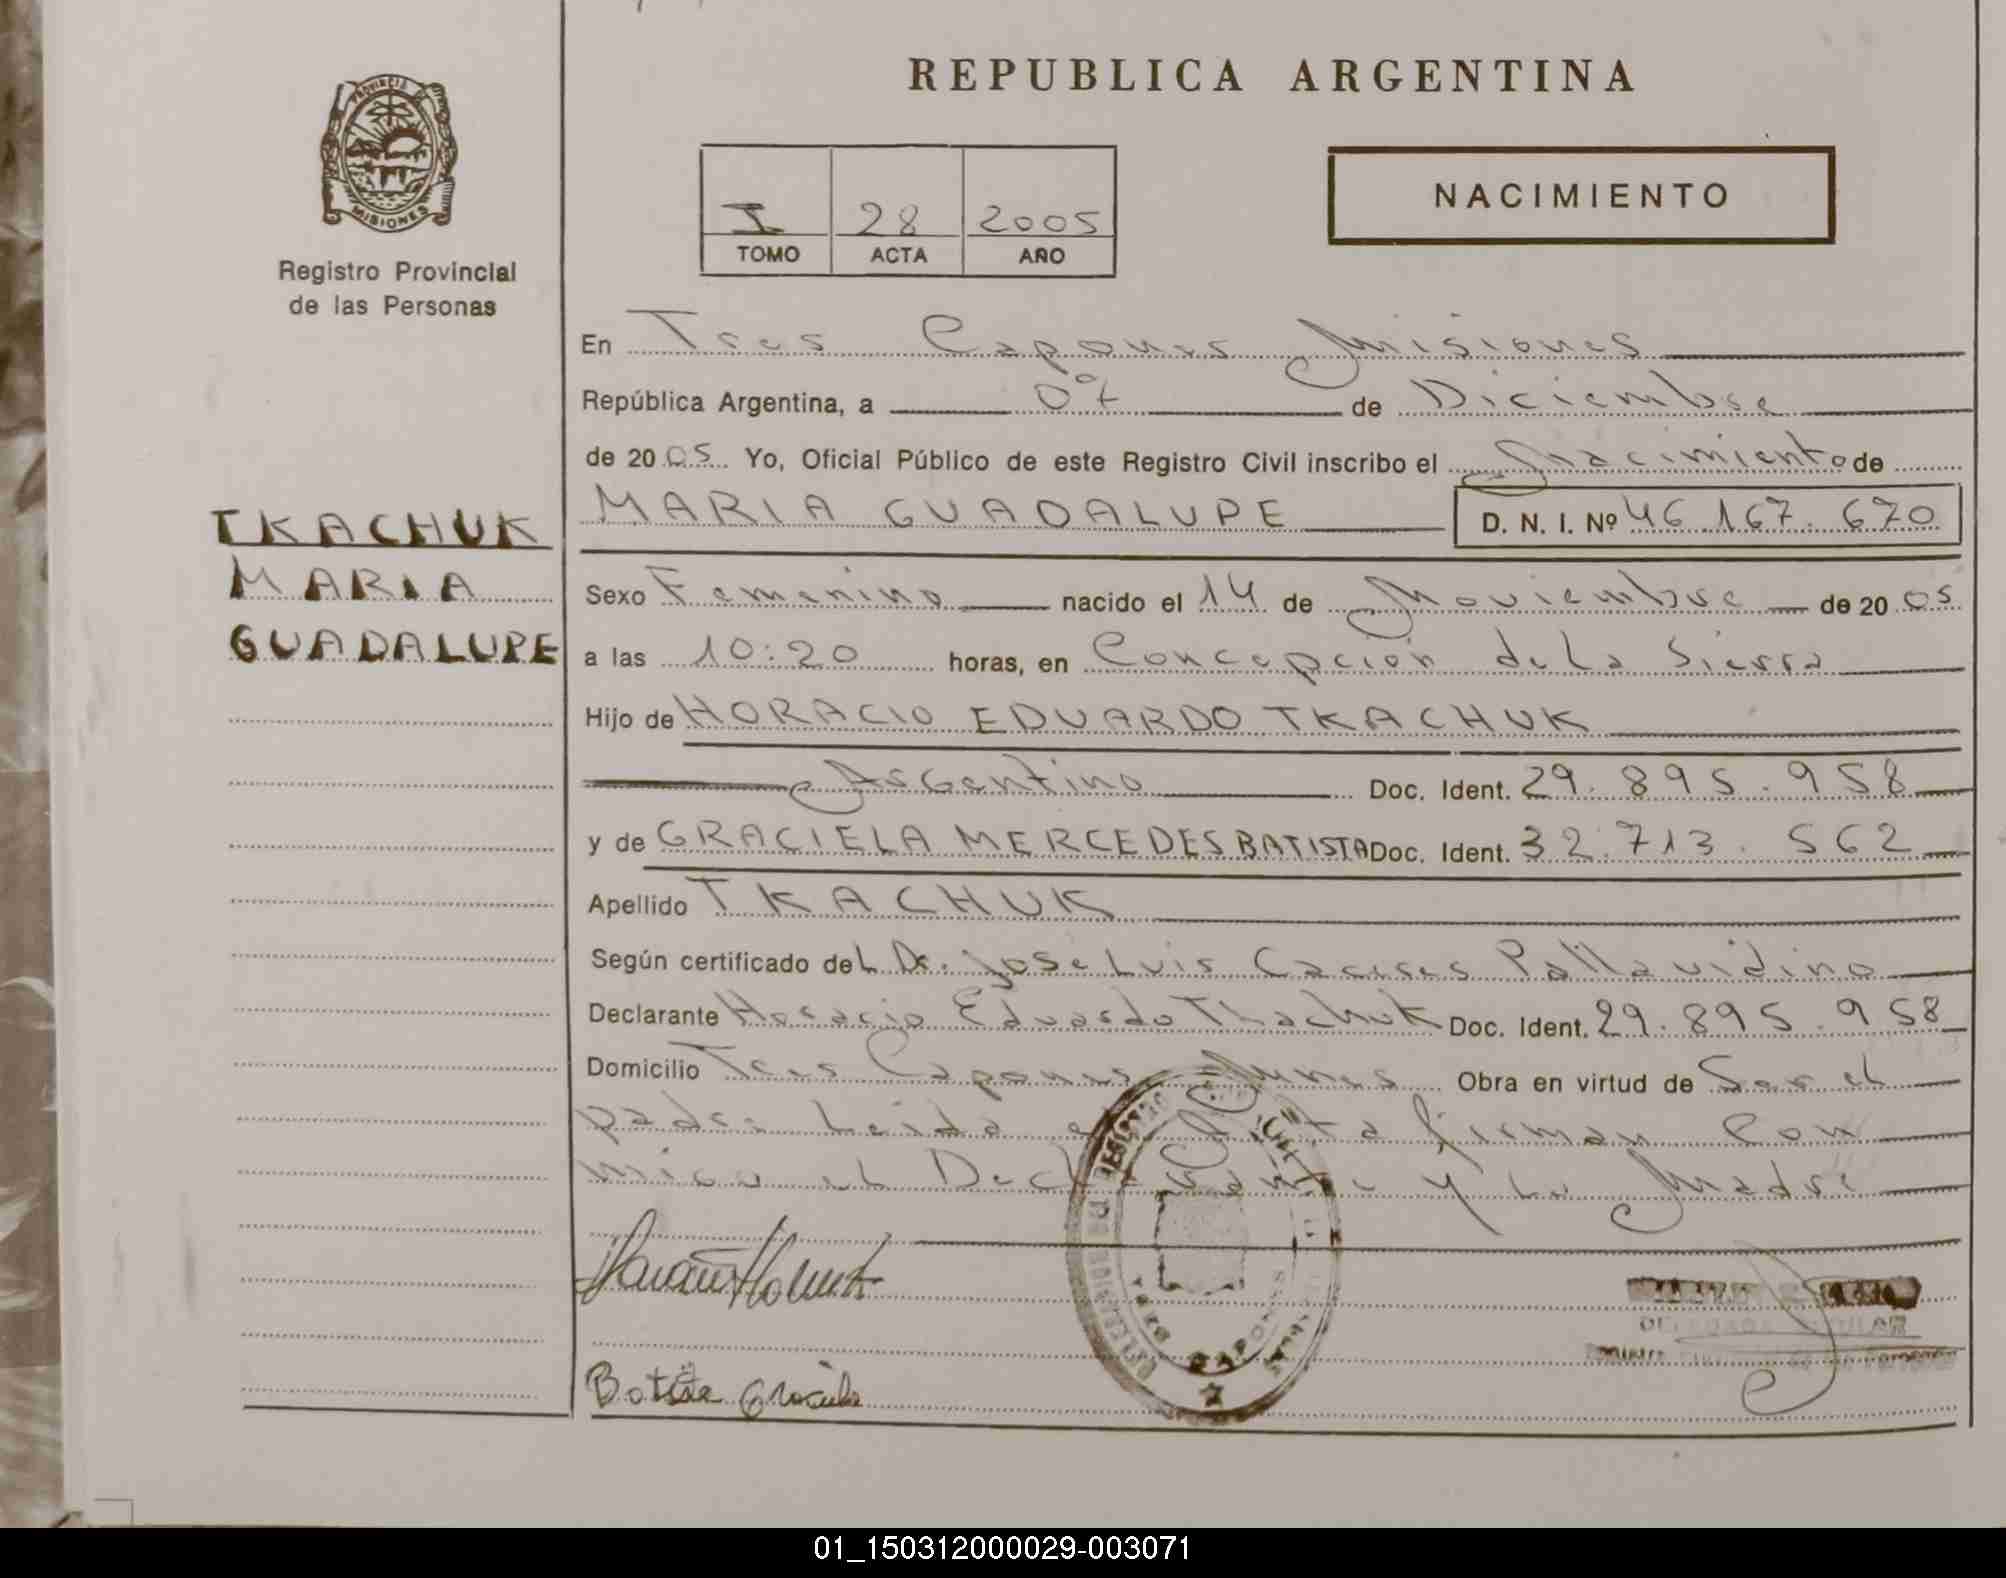 REPUBLICA ARGENTINA
PROVINCIA DE
MISIONES
Registro Provincial
de las Personas
I 28 2005
TOMO ACTA AÑO
NACIMIENTO
En Tres Capones Misiones
República Argentina, a 07 de Diciembre
de 2005 Yo, Oficial Público de este Registro Civil inscribo el Nacimiento de
MARIA GUADALUPE D. N. I. Nº 46.167.670
TKACHUK
MARIA
GUADALUPE
Sexo Femenino nacido el 14 de Noviembre de 2005
a las 10:20 horas, en Concepción de La Sierra
Hijo de HORACIO EDUARDO TKACHUK
Argentino Doc. Ident. 29.895.958
y de GRACIELA MERCEDES BATISTA Doc. Ident. 32.713.562
Apellido TKACHUK
Según certificado deL Dr. Jose Luis Caceres Pallavidino
Declarante Horacio Eduardo Tkachuk Doc. Ident. 29.895.958
Domicilio Tres Capones Mnes Obra en virtud de Ser el
padre Leida el Acta firman Con
migo el Declarante y La Madre
Batista Graciela
TRES CAPONES
01_150312000029-003071